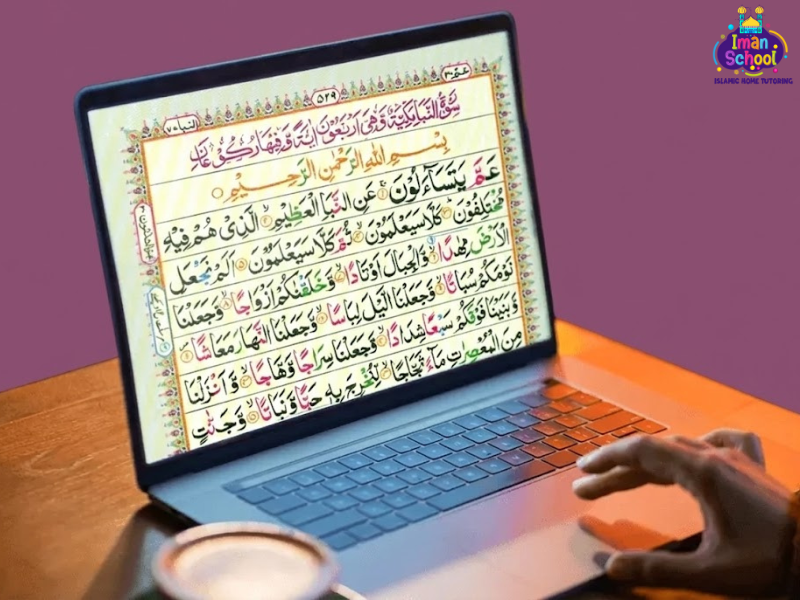 Iman
School
ISLAMIC HOME TUTORING
عمّ ٣٠
٥٢٩
سُوْرَةُ النَّبَاِ مَكِّيَّةٌ وَّهِيَ اَرْبَعُوْنَ اٰيَةً وَّفِيْهَا رُكُوْعَانِ
بِسْمِ اللهِ الرَّحْمٰنِ الرَّحِيْمِ
عَمَّ يَتَسَآءَلُوْنَ ۚ ١ عَنِ النَّبَاِ الْعَظِيْمِ ۙ ٢ الَّذِيْ هُمْ فِيْهِ
مُخْتَلِفُوْنَ ؕ ٣ كَلَّا سَيَعْلَمُوْنَ ۙ ٤ ثُمَّ كَلَّا سَيَعْلَمُوْنَ ٥ اَلَمْ نَجْعَلِ
الْاَرْضَ مِهٰدًا ۙ ٦ وَّالْجِبَالَ اَوْتَادًا ٧ وَّخَلَقْنٰكُمْ اَزْوَاجًا ٨ وَّجَعَلْنَا
نَوْمَكُمْ سُبَاتًا ٩ وَّجَعَلْنَا الَّيْلَ لِبَاسًا ١٠ وَّجَعَلْنَا النَّهَارَ مَعَاشًا ١١
وَّبَنَيْنَا فَوْقَكُمْ سَبْعًا شِدَادًا ١٢ وَّجَعَلْنَا سِرَاجًا وَّهَّاجًا ١٣ وَّاَنْزَلْنَا
مِنَ الْمُعْصِرٰتِ مَآءً ثَجَّاجًا ١٤ لِّنُخْرِجَ بِهٖ حَبًّا وَّنَبَاتًا ١٥ وَّجَنّٰتٍ